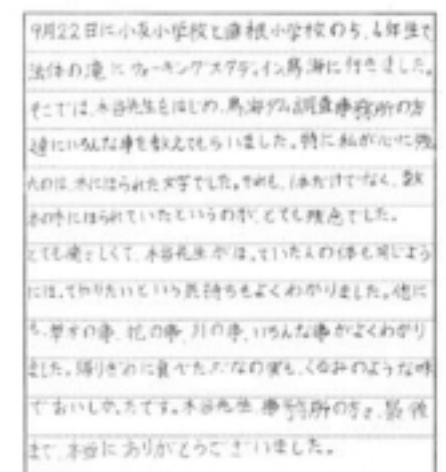 9月22日に小友小学校と直根小学校の5、6年生で
法体の滝にウォーキングスタディイン鳥海に行きました。
そこでは、木谷先生をはじめ、鳥海ダム調査事務所の方
達にいろんな事を教えてもらいました。特に私が心に残
たのは、木にほられた文字でした。それも、1本だけでなく、数
本の木にほられていたというのが、とても
とても
という気持ちもよくわかりました。他に
も、草木の事、蛇の事、川の事、いろんな事がよくわかり
ました。帰りぎわに食べたぶなの実も、くるみのような味
でおいしかったです。木谷先生、事務所の方々、最後
まで、本当にありがとうございました。